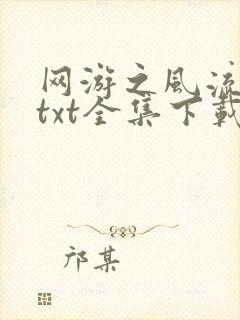 网游之风流
txt全集下载
邝某